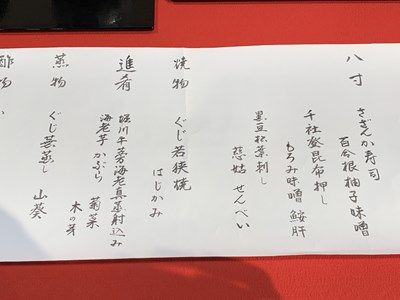 八寸
さざんか寿司
百合根柚子味噌
千社唐昆布押し
もろみ味噌 鮟肝
黒豆松葉刺し
慈姑せんべい
焼物
ぐじ若狭焼
はじかみ
進肴
堀川牛蒡海老真蒸射込み
海老芋 かぶら 菊菜
木の芽
蒸物
ぐじ蕪蒸し 山葵
酢物